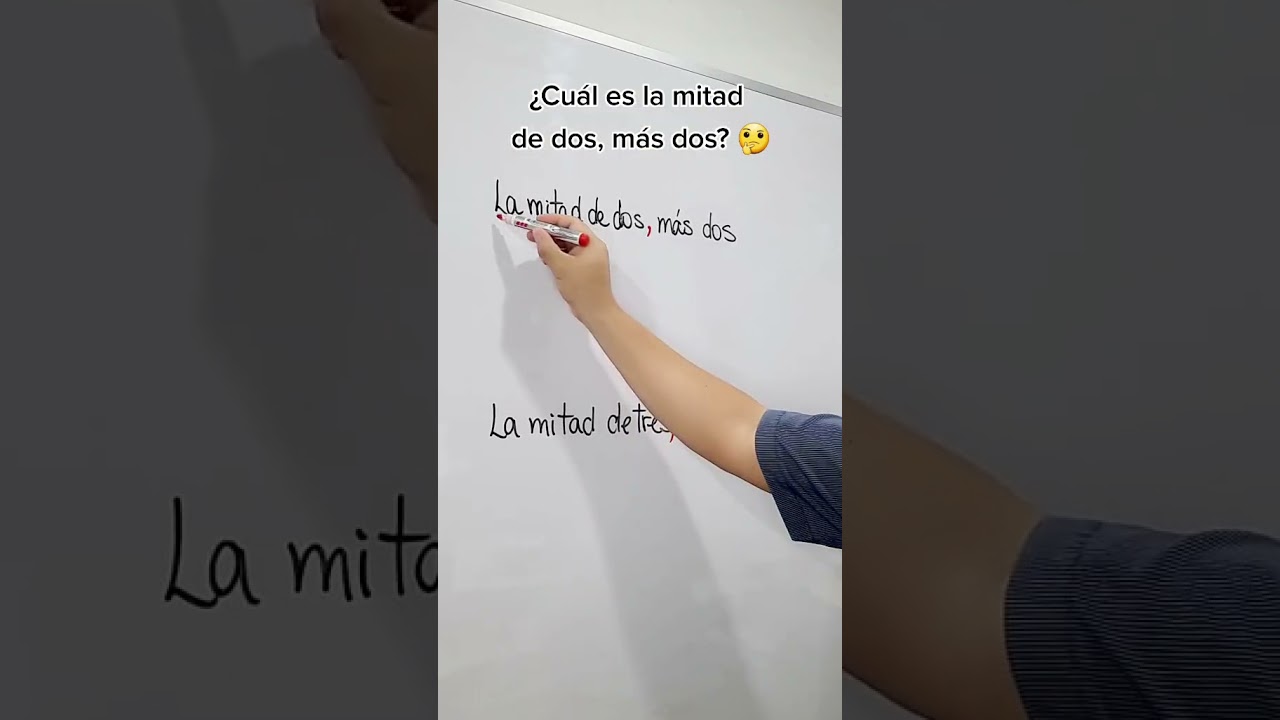 ¿Cuál es la mitad
de dos, más dos? 🤔
La mitad de dos, más dos
La mitad de tres,
La mita